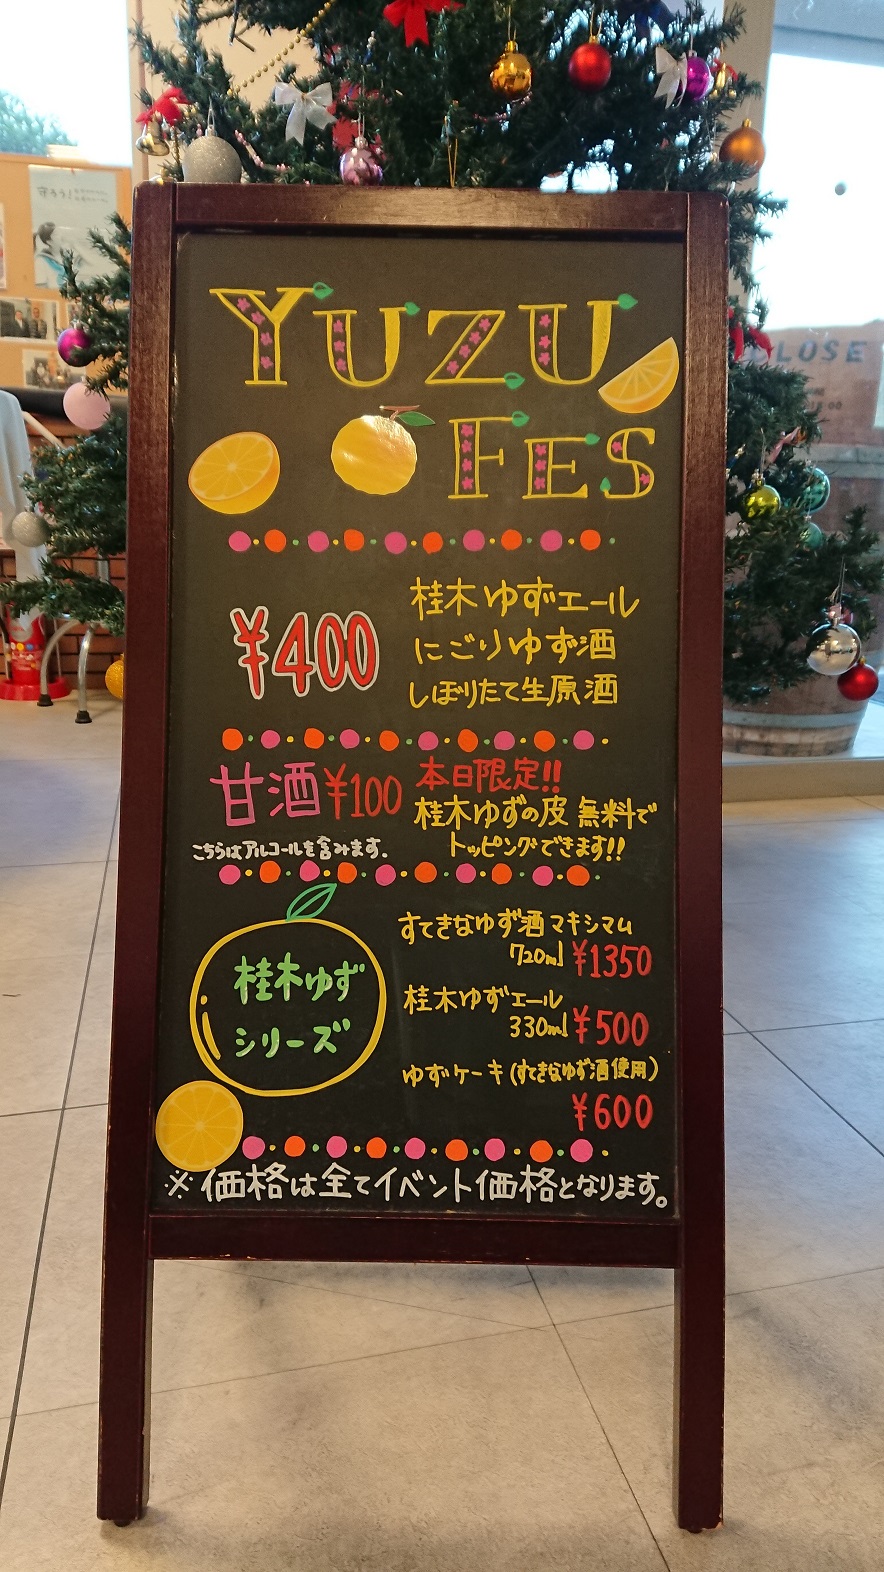 守ろう!
CLOSE
YUZU
FES
¥400
桂木ゆずエール
にごりゆず酒
しぼりたて生原酒
甘酒¥100
こちらはアルコールを含みます.
本日限定!!
桂木ゆずの皮 無料で
トッピングできます!!
桂木ゆず
シリーズ
すてきなゆず酒マキシマム
720ml ¥1350
桂木ゆずエール
330ml ¥500
ゆずケーキ(すてきなゆず酒使用)
¥600
※価格は全てイベント価格となります。